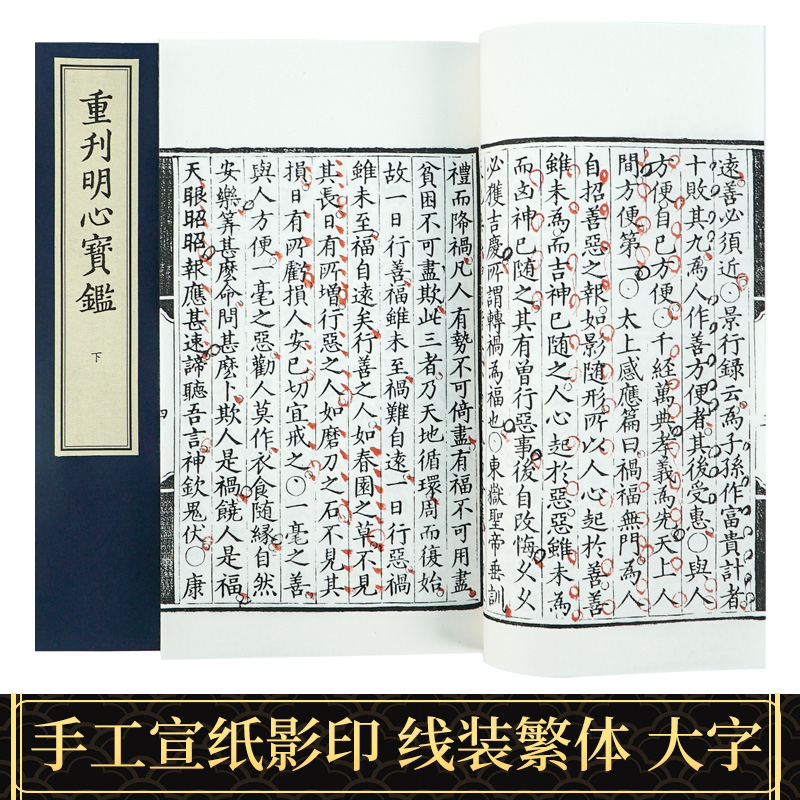 重刋明心寶鑑
下
遠善必須近○景行録云爲子孫作富貴計者
十敗其九爲人作善方便者其後受惠○與人
方便自已方便○千經萬典孝義爲先天上人
間方便第一○太上感應篇曰禍福無門爲人
自招善惡之報如影随形所以人心起於善善
雖未爲而吉神已随之人心起於惡惡雖未爲
而凶神已随之其有曽行惡事後自改悔久久
必獲吉慶所謂轉禍爲福也○東嶽聖帝垂訓
禮而降禍凡人有勢不可倚盡有福不可用盡
貧困不可盡欺此三者乃天地循環周而復始
故一日行善福雖未至禍難自遠一日行惡禍
雖未至福自遠矣行善之人如春園之草不見
其長日有所增行惡之人如磨刀之石不見其
損日有所虧損人安已切宜戒之○一毫之善
與人方便一毫之惡勸人莫作衣食随緣自然
安樂筭甚麽命問甚麽卜欺人是禍饒人是福
天眼昭昭報應甚速諦聽吾言神欽鬼伏○康
四
手工宣纸影印 线装繁体 大字